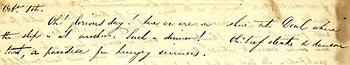 Oct. 1st.
Oh! glorious day! here we are on shore at Deal where
the ship is at anchor. Such a dinner! Oh! beef steaks & damson
tart, a paradise for hungry sinners.